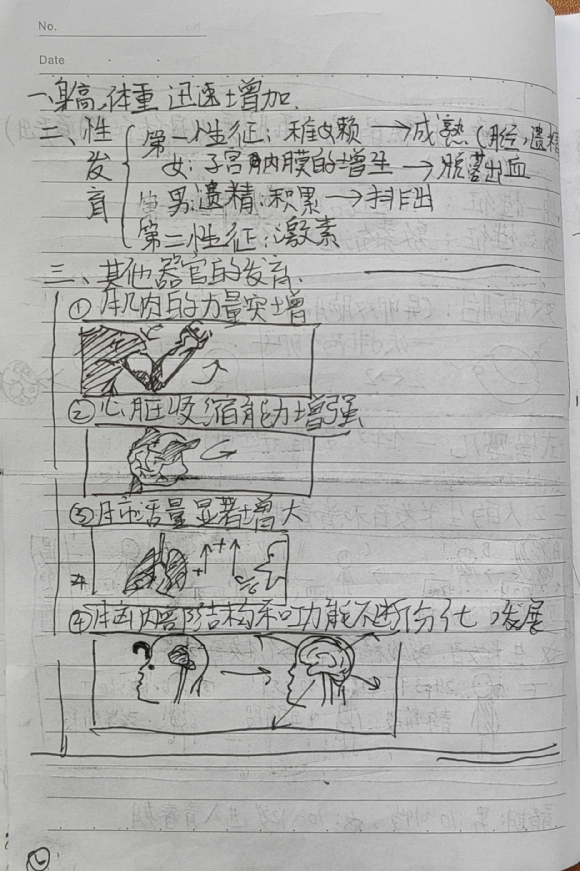 No.
Date
一、身高、体重 迅速增加.
二、性发育
第一性征:稚嫩 → 成熟(月经,遗精
女:子宫内膜的增生 → 脱落出血
男:遗精:积累 → 排出
第二性征:激素
三、其他器官的发育.
①肌肉的力量突增
②心脏收缩能力增强
③肺活量显著增大
④脑内部结构和功能不断分化,发展